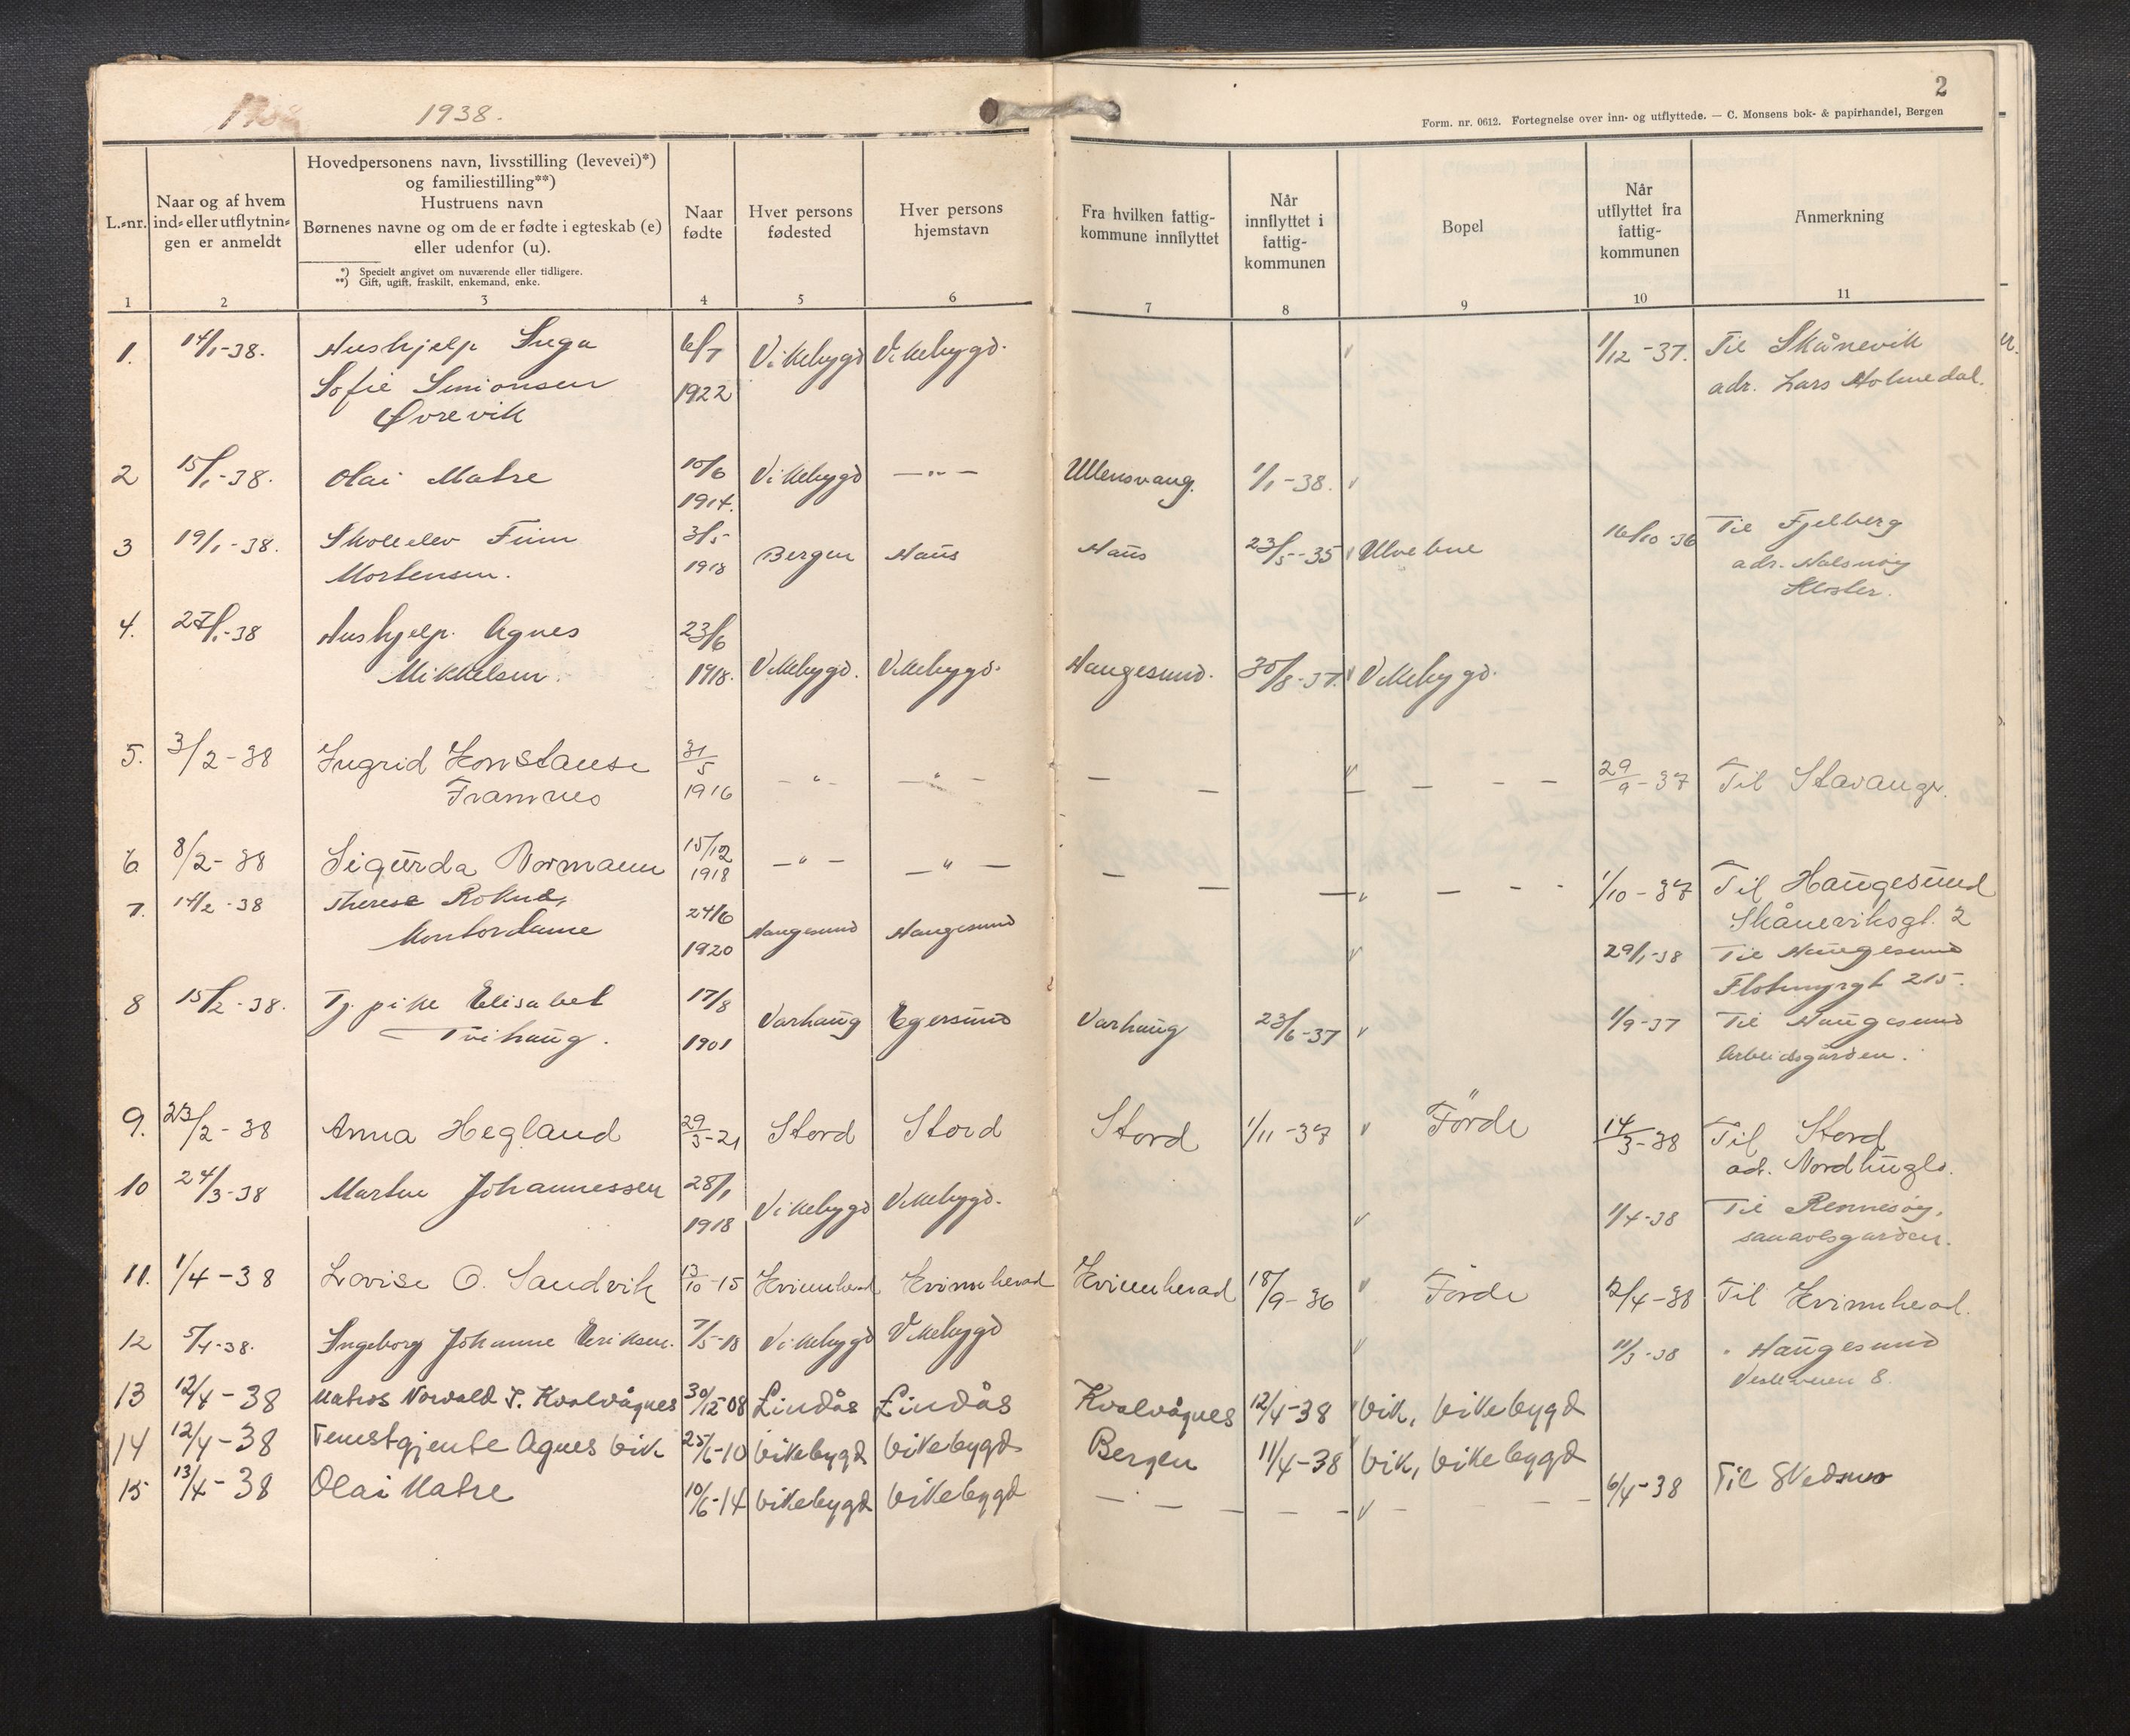 1938.
2
Form. nr. 0612. Fortegnelse over inn- og utflyttede. — C. Monsens bok- & papirhandel, Bergen
L.-nr.
Naar og af hvem
ind- eller utflytnin-
gen er anmeldt
Hovedpersonens navn, livsstilling (levevei)*)
og familiestilling**)
Hustruens navn
Børnenes navne og om de er fødte i egteskab (e)
eller udenfor (u).
*) Specielt angivet om nuværende eller tidligere.
**) Gift, ugift, fraskilt, enkemand, enke.
Naar
fødte
Hver persons
fødested
Hver persons
hjemstavn
Fra hvilken fattig-
kommune innflyttet
Når
innflyttet i
fattig-
kommunen
Bopel
Når
utflyttet fra
fattig-
kommunen
Anmerkning
1 2 3 4 5 6 7 8 9 10 11
1. 14/1-38. Hushjelp Inga 6/7 Vikebygd Vikebygd. 1/12-37. Til Skånevik
Sofie Simonsen 1922 adr. Lars Holmedal.
Øvrevik
2 15/1-38. Olai Matre 10/6 Vikebygd —"— Ullensvang. 1/1-38.
1914.
3 19/1-38. Skoleelev Finn 3/5 Bergen Haus Haus 23/5-35 Ulvebne 16/10-36 Til Fjelberg
Mortensen. 1918 adr. Halsnøy
Kloster.
4. 27/1-38 Hushjelp. Agnes 23/6
Mikkelsen. 1918. Vikebygd. Vikebygd. Haugesund. 30/8-37. Vikebygd.
5. 3/2-38 Ingrid Konstanse 31/5 —"— —"— 29/9-37 Til Stavanger.
Framnes 1916
6 8/2-38 Sigurda Normann 15/12 —"— —"— 1/10-37 Til Haugesund
1918 Skåneviksgt. 2
7. 14/2-38 Therese Rokne, 24/6 Haugesund Haugesund 29/1-38 Til Haugesund
Kontordame 1920 Flotmyrgt 215.
8 15/2-38. Tj. pike Elisabet 17/8 Varhaug Egersund Varhaug 23/6-37 1/9-37 Til Haugesund
Tvihaug. 1901 Arbeidsgården.
9. 23/2-38 Anna Hegland 29/3-21 Stord Stord Stord 1/11-37 Förde 14/3-38 Til Stord
ad. Nordhuglo.
10 24/3-38 Martin Johannessen 28/1 Vikebygd Vikebygd. 1/4-38 Til Rennesøy,
1918
11. 1/4-38 Lovise O. Sandvik 13/10-15 Kvinnherad Kvinnherad Kvinnherad 18/9-36 Förde 2/4-38 Til Kvinnherad.
12 5/4-38. Ingeborg Johanne Eriksen. 7/5-18 Vikebygd Vikebygd 11/3-38 " Haugesund
13 12/4-38 Matros Norvald J. Kvalvågnes 30/12-08 Lindås Lindås Kvalvågnes 12/4-38 Vik, Vikebygd
14 12/4-38 Tenestgjente Agnes Vik 25/6-10 Vikebygd Vikebygd Bergen 11/4-38 Vik, Vikebygd
15 13/4-38 Olai Matre 10/6-14 Vikebygd Vikebygd 6/4-38 Til Skedsmo